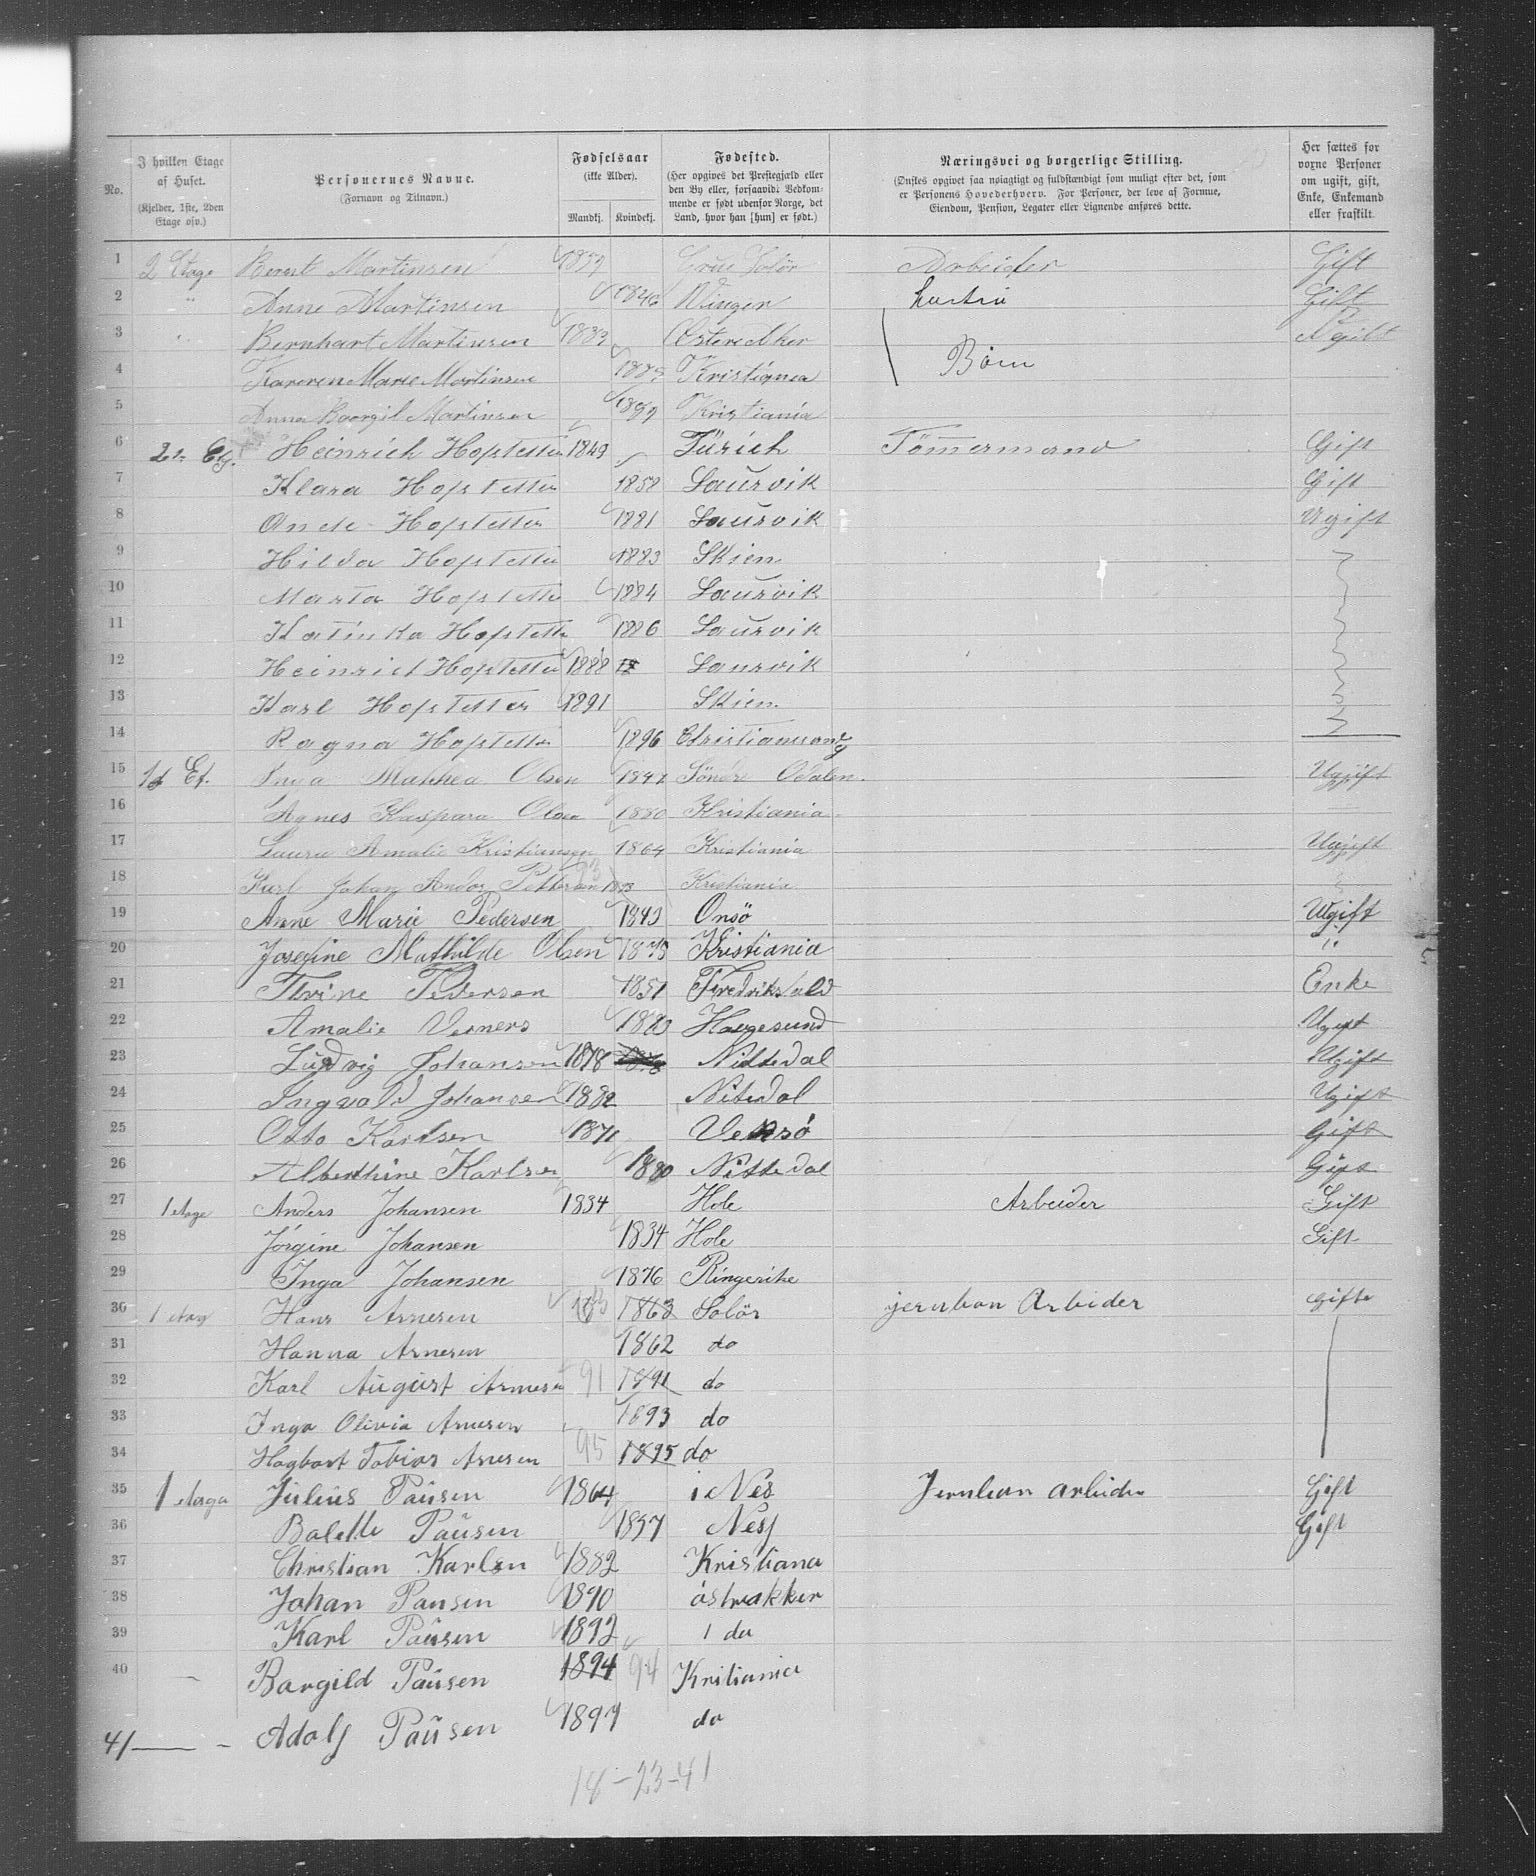 No. I hvilken Etage af Huset. (Kjelder, 1ste, 2den Etage osv.) Personernes Navne. (Fornavn og Tilnavn.) Fødselsaar (ikke Alder). Mandkj. Kvindekj. Fødested. (Her opgives det Prestegjæld eller den By eller, forsaavidt Vedkommende er født udenfor Norge, det Land, hvor han [hun] er født.) Næringsvei og borgerlige Stilling. (Ønskes opgivet saa nøiagtigt og fuldstændigt som muligt efter det, som er Personens Hovederhverv. For Personer, der leve af Formue, Eiendom, Pension, Legater eller Lignende anføres dette. Her sættes for voxne Personer om ugift, gift, Enke, Enkemand eller fraskilt.
1 2 Etage Bernt Martinsen Grue Solör Arbeider Gift
2 " Anne Martinsen 1846 Vinger hustru Gift
3 Bernhart Martinsen 1883 Østere Aker Børn Ugift
4 Marie Martinsen Kristiania
5 Anna Martinsen Kristiania
6 2n Etg. Heinrich Hofstetter 1849 Zürich Tömermand Gift
7 Klara Hofstetter 1858 Laurvik Gift
8 Hofstetter 1881 Laurvik Ugift
9 Hilda Hofstetter 1883 Skien
10 Marta Hofstette 1884 Laurvik
11 Katinka Hofstette 1886 Laurvik
12 Heinrich Hofstetter 1888 Laurvik
13 Karl Hofstetter 1891 Skien
14 Ragna Hofstetter 1896 Christianssand
15 1st Et. Inga Mathea Olsen 1847 Söndr Odalen. Ugjift
16 Agnes Kaspara Olsen 1880 Kristiania
17 Laura Amalie Kristiansen 1864 Kristiania Ugjift
18 Karl Johan Andor Pettersen 1893 Kristiania
19 Anne Marie Pedersen 1843 Onsö Utgift
20 Josefine Mathilde Olsen 1875 Kristiania
21 Pedersen 1851 Fredrikshald Enke
22 Amalie Verners 1883 Haugesund Ugift
23 Ludvig Johansen 1878 Nittedal Ugift
24 Ingvald Johansen 1882 Nitedal Ugift
25 Otto Karlsen 1871 Gift
26 Alberthine Karlsen 1880 Nittedal Gift
27 1 etage Anders Johansen 1834 Hole Arbeider Gift
28 Jörgine Johansen 1834 Hole Gift
29 Inga Johansen 1876 Ringerike
30 1 etag Hans Arnesen 63 1863 Solör jernban Arbeider Gifte
31 Hanna Arnesen 1862 do
32 Karl August Arnesen 91 1891 do
33 Inga Olivia Arnesen 1893 do
34 Hagbart Tobias Arnesen 95 1895 do
35 1 etaga Julius Paüsen 1864 i Nes Jernban arbeider Gift
36 Balette Paüsen 1857 Nes Gift
37 Christian Karlsen 1882 Kristiana
38 Johan Pausen 1890 östreakker
39 Karl Paüsen 1892 i do
40 — Borgild Paüsen 1894 94 Kritiania
41 — - Adolf Paüsen 1897 do
18-23-41